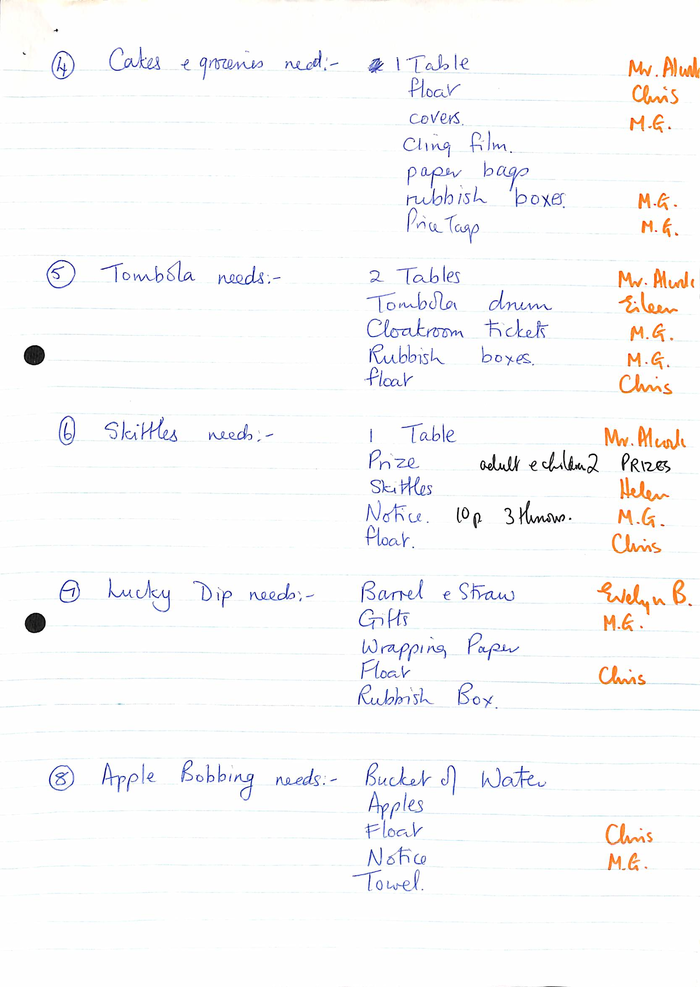 ④ Cakes e groceries need:- 1 Table Mr.
float Chris
covers. M.G.
Cling film.
paper bags
rubbish boxes. M.G.
Price Tags M.G.
⑤ Tombola needs:- 2 Tables Mr.
Tombola drum Eileen
Cloakroom tickets M.G.
Rubbish boxes. M.G.
float Chris
⑥ Skittles needs:- 1 Table Mr.
Prize adult e children 2 PRIZES
Skittles Helen
Notice. 10p 3 throws. M.G.
Float. Chris
⑦ Lucky Dip needs:- Barrel e Straw Evelyn B.
Gifts M.G.
Wrapping Paper
Float Chris
Rubbish Box.
⑧ Apple Bobbing needs:- Bucket of Water
Apples
Float Chris
Notice M.G.
Towel.